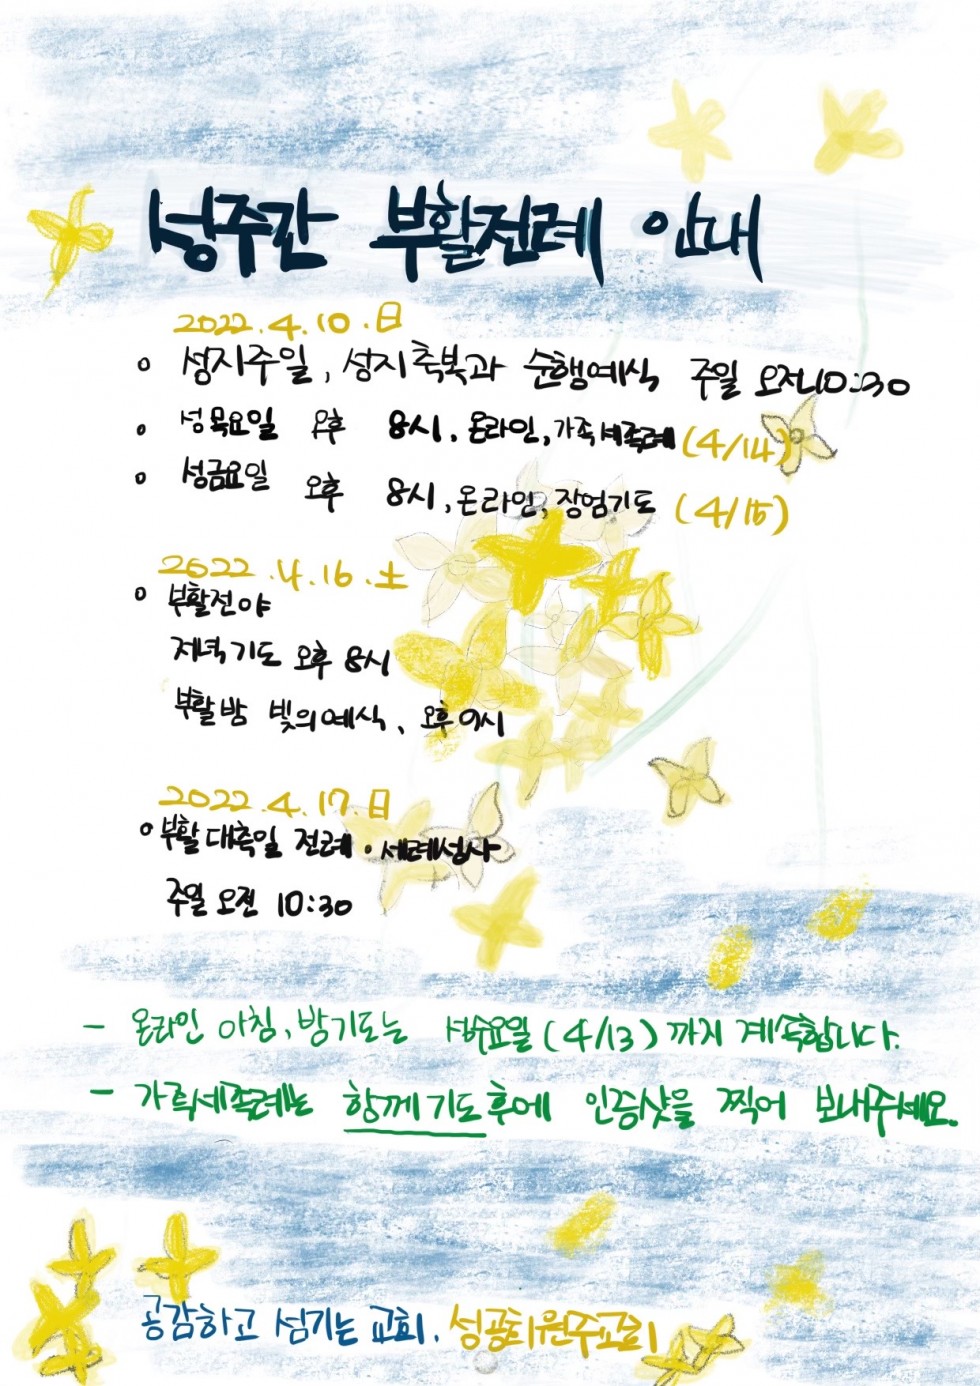 성주간 부활전례 안내
2022.4.10.日
성지주일, 성지축복과 순행예식 주일 오전10:30
성목요일 오후 8시, 온라인, 가족세족례 (4/14)
성금요일 오후 8시, 온라인, 장엄기도 (4/15)
2022.4.16.土
부활전야
저녁기도 오후 8시
부활밤 빛의예식, 오후 9시
2022.4.17.日
부활대축일 전례·세례성사
주일 오전 10:30
- 온라인 아침, 밤기도는 성수요일 (4/13) 까지 계속합니다.
- 가족세족례는 함께기도후에 인증샷을 찍어 보내주세요.
공감하고 섬기는 교회. 성공회원주교회